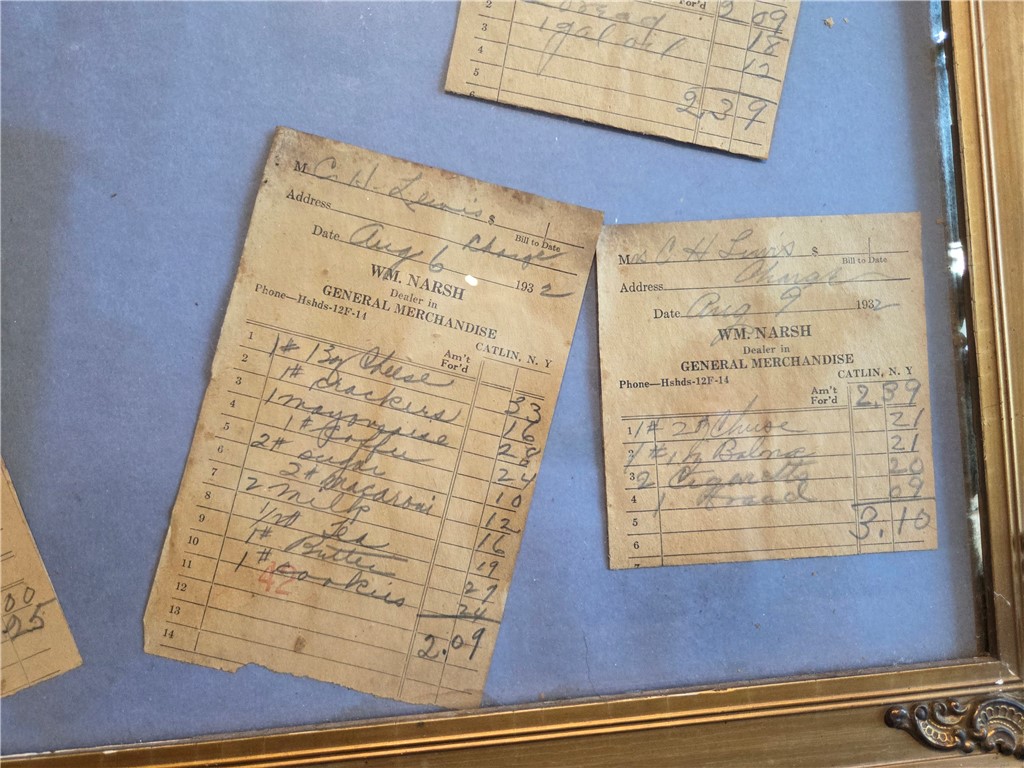 For'd 2 09
2 bread 18
3 1 gal oil 12
4
5
6 2.39
M C. H. Lewis $
Address Charge Bill to Date
Date Aug 6 1932
WM. NARSH
Dealer in
GENERAL MERCHANDISE
Phone—Hshds-12F-14 CATLIN, N. Y
Am't For'd
1 1# 13¢ Cheese 33
2 1# Crackers 16
3 1 mayonnaise 28
4 1# Coffee 24
5 2# sugar 10
6 2# macaroni 12
7 2 milk 16
8 1/2# Tea 19
9 1# Butter 27
10 1# cookies 24
11 42
12
13 2.09
14
Mrs C H Lewis $
Bill to Date
Address Charge
Date Aug 9 1932
WM. NARSH
Dealer in
GENERAL MERCHANDISE
Phone—Hshds-12F-14 CATLIN, N. Y
Am't For'd 2.39
1 1# Cheese 21
2 1# Bolona 21
3 2 Cigaretts 20
4 1 bread 09
5 3.10
6
7
00
25